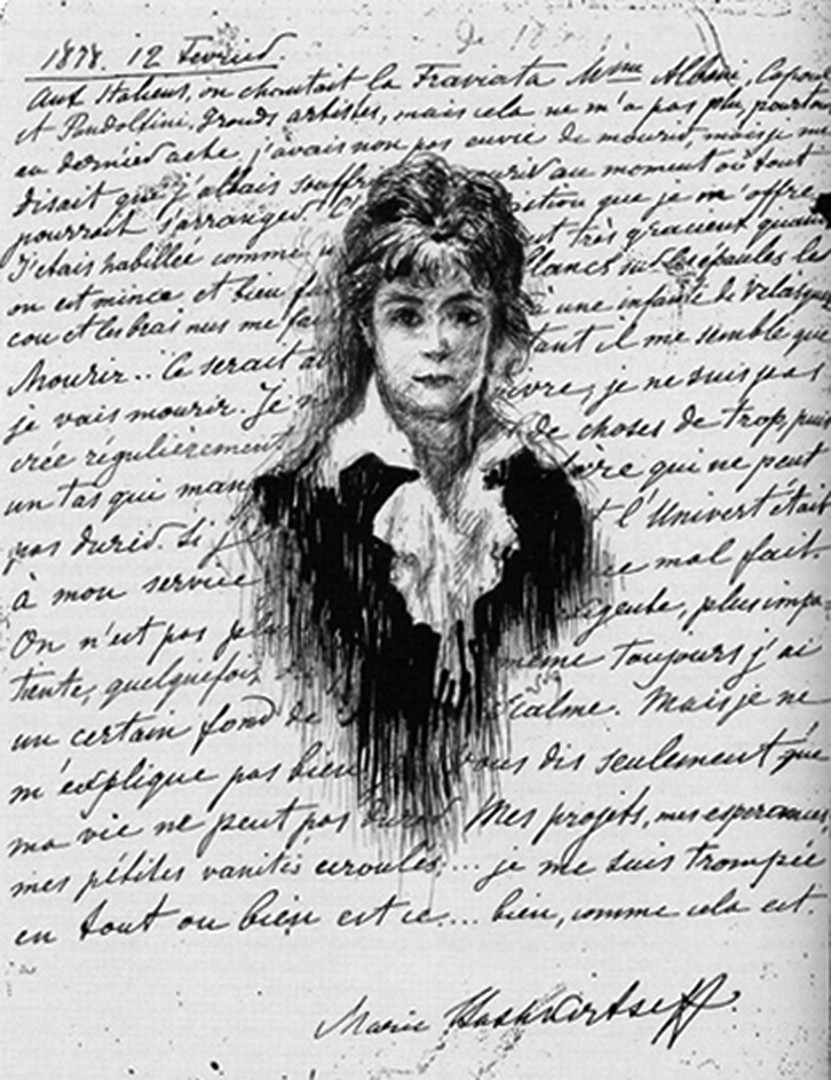 De 18
1878. 12 Fevrier.
Aux Italiens, on chantait la Traviata Mme Albani, Capoul
et Pandolfini. Grands artistes, mais cela ne m'a pas plu, pourtant
au dernier acte j'avais non pas envie de mourir, mais je me
disait que j'allais souffr rir au moment où tout
pourrait s'arranger. C ition que je m'offre
J'étais habillée comme u t très gracieux quand
on est mince et bien f blancs sur les épaules le
cou et les bras nus me fa à une infante de Velasqu
Mourir.. Ce serait a tant il me semble que
je vais mourir. Je n ivre, je ne suis pas
crée régulièrement de choses de trop, puis
un tas qui man ère qui ne peut
pas durer. Si j t l'Univert était
à mon service ce mal fait
On n'est pas plus geante, plus impa-
tiente; quelquefois même toujours j'ai
un certain fond de calme. Mais je ne
m'explique pas bien je vous dis seulement que
ma vie ne peut pas durer Mes projets, mes esperances,
mes pétites vanités écroulés.... je me suis trompée
en tout ou bien est ce.... bien, comme cela est.
Marie Bashkirtseff